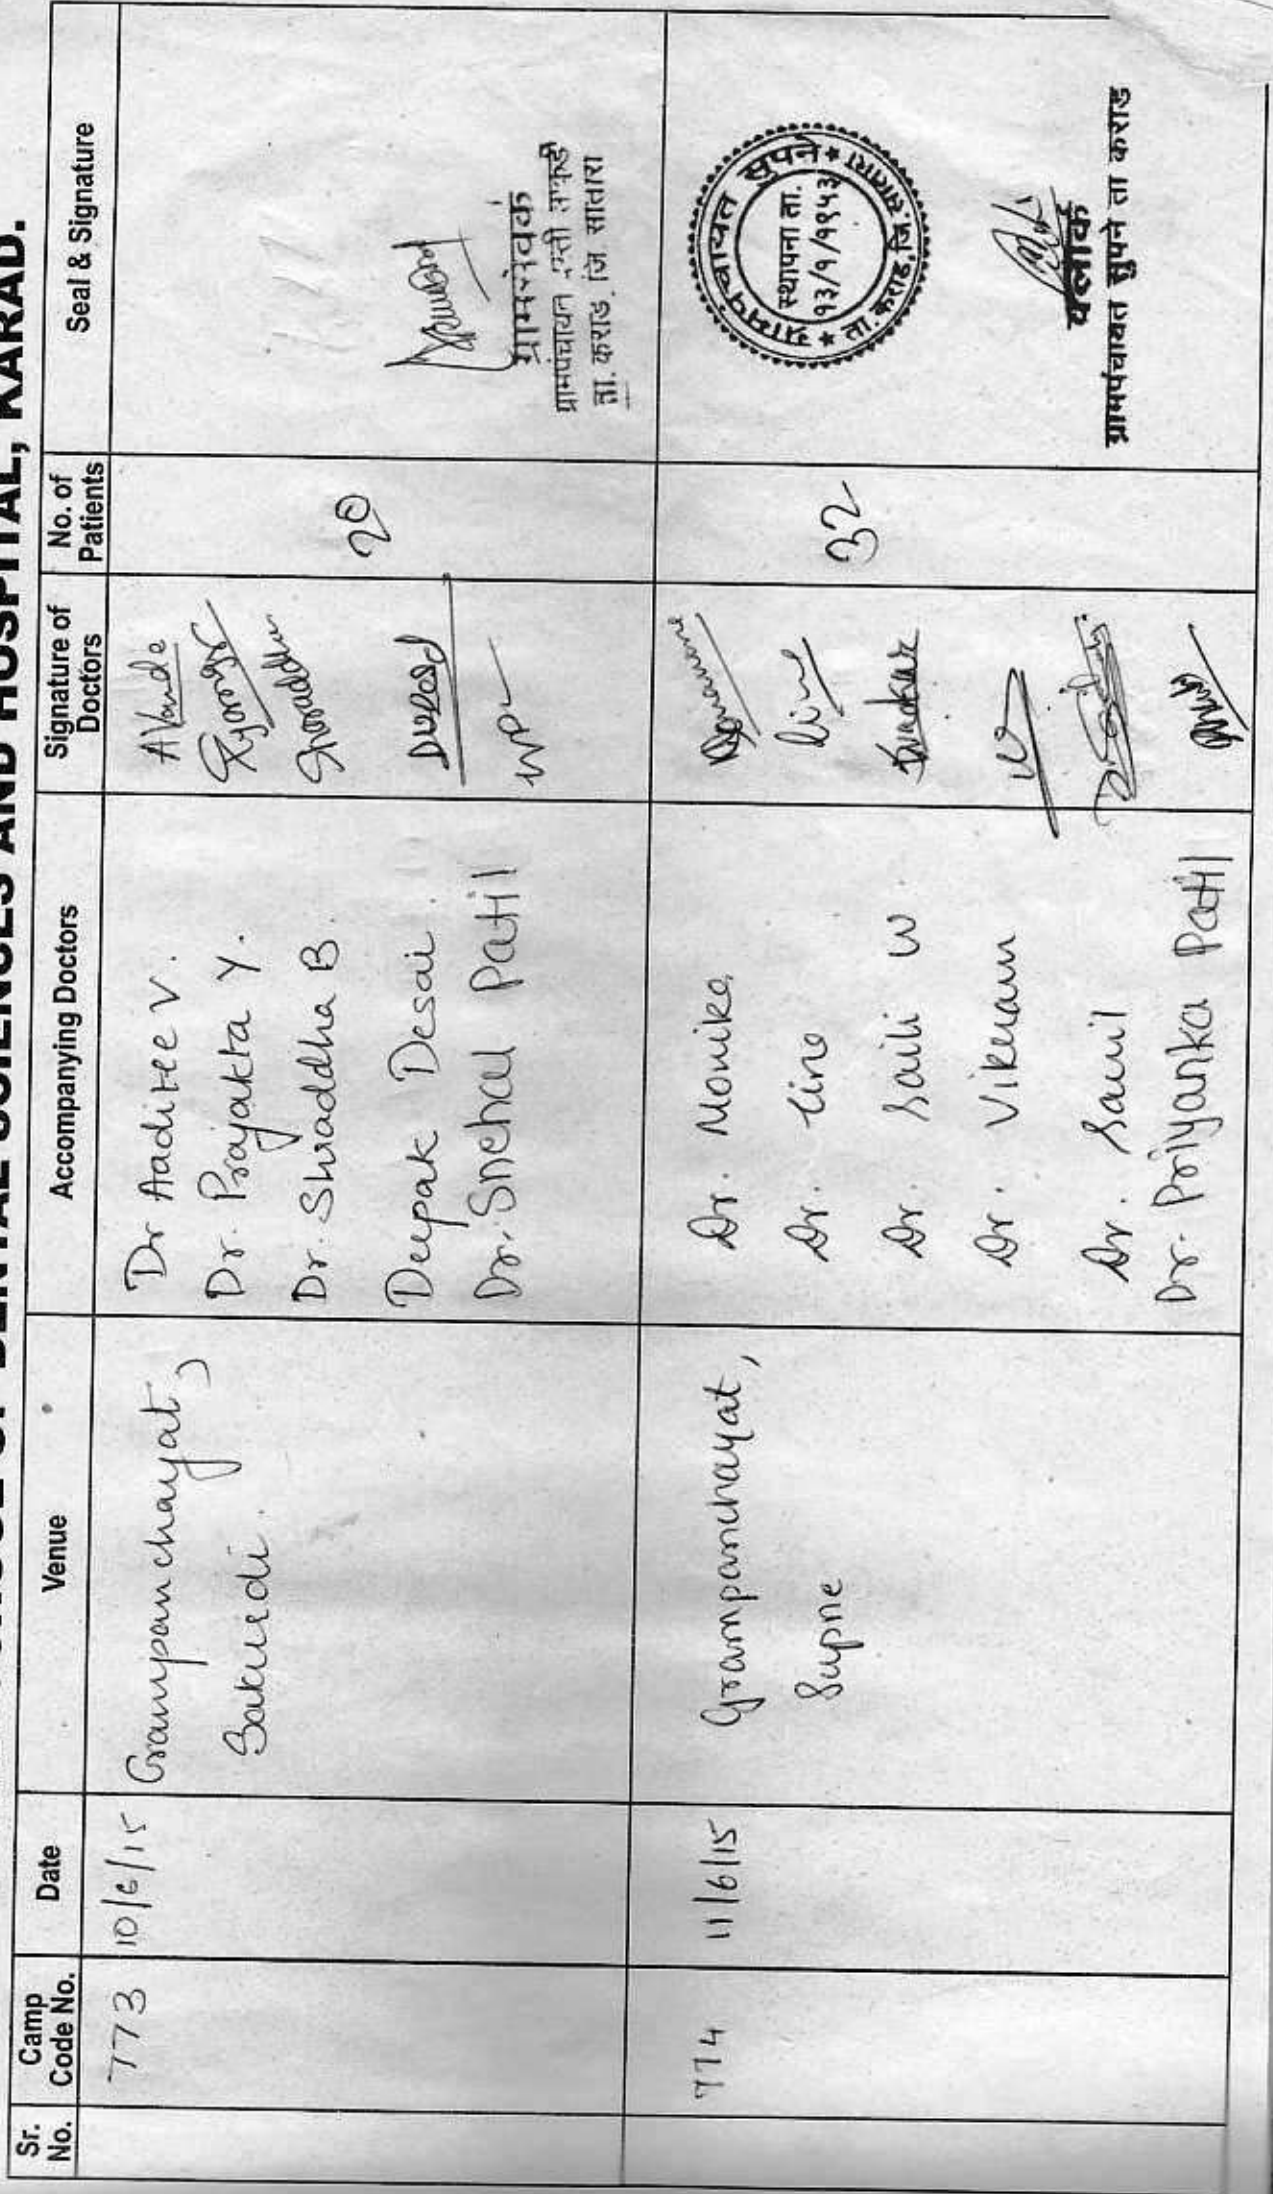 DENTAL SCIENCES AND HOSPITAL, KARAD.
Sr. No.
Camp Code No.
Date
Venue
Accompanying Doctors
Signature of Doctors
No. of Patients
Seal & Signature
773
10/6/15
Grampanchayat,
Sakurdi.
Dr Aaditee V.
Dr. Prajakta Y.
Dr. Shraddha B.
Deepak Desai.
Dr. Snehal Patil
AVande
Shraddha
20
ग्रामसेवक
ग्रामपंचायत
ता. कराड, जि. सातारा
774
11/6/15
Grampanchayat,
Supne
Dr. Monika
Dr. Lino
Dr. Saili W.
Dr. Vikram
Dr. Sauil
Dr. Priyanka Patil
32
ग्रामपंचायत सुपने
स्थापना ता.
१३/१/१९५३
ता. कराड, जि. सातारा
ग्रामपंचायत सुपने ता कराड